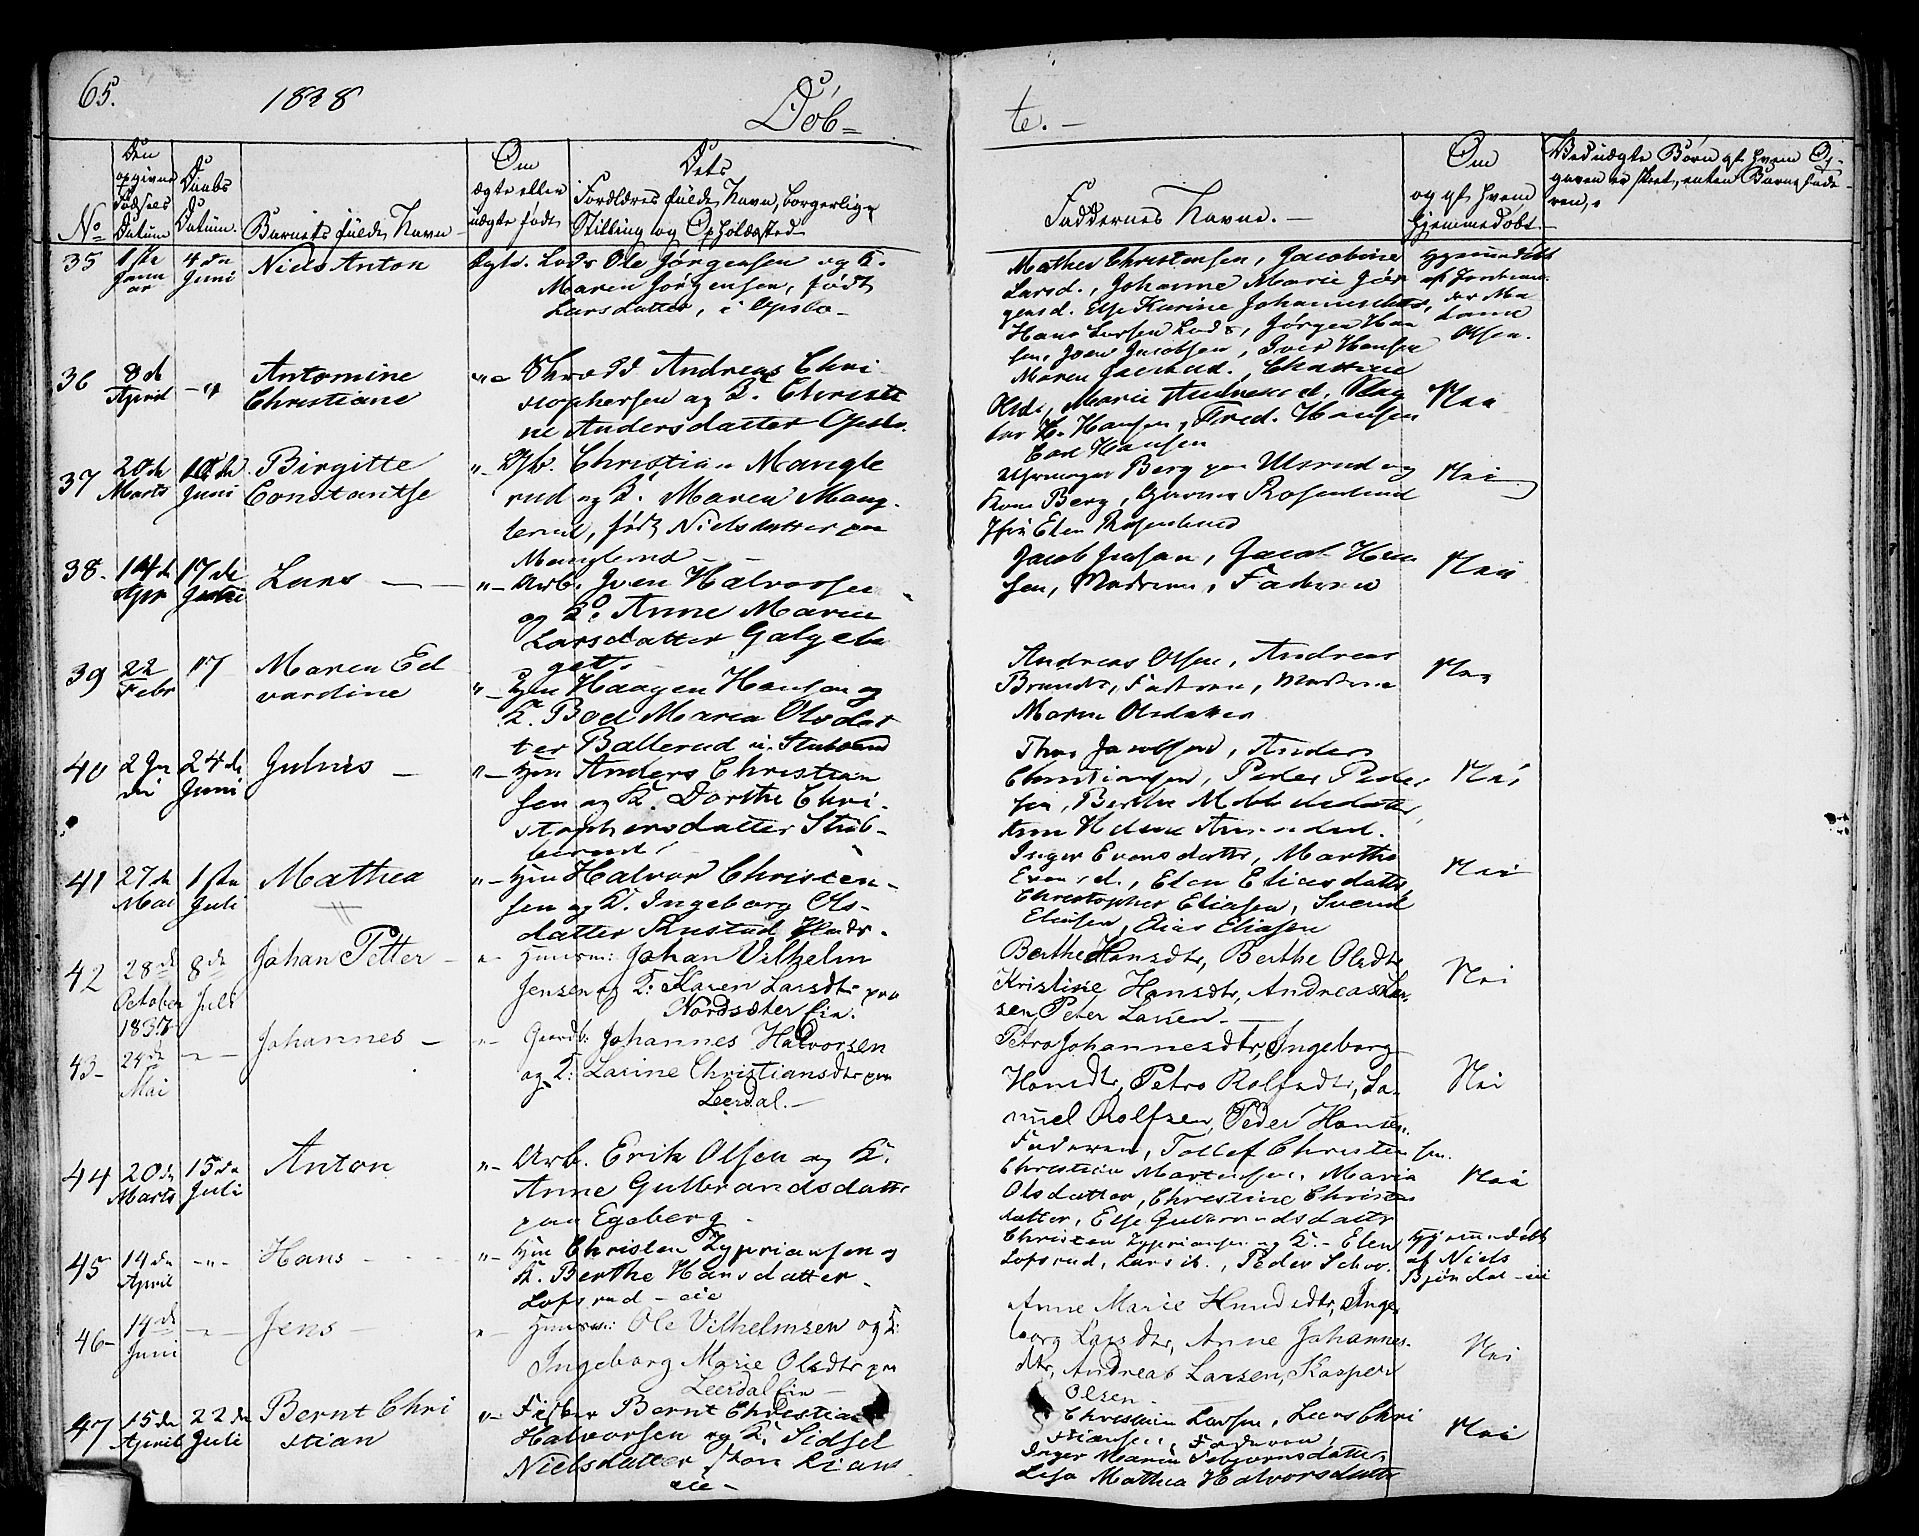 65.
1838
Döb-
te. -
No
Den opgivne Fødsels Datum
Daabs Datum.
Barnets fulde Navn
Om ægte eller uægte født
Dets Forældres fulde Navn, borgerlige Stilling og Opholdssted
Faddernes Navne. -
Om og af hvem hjemmedøbt.
Ved uægte Børn af hvem Opgaven er skeet, enten Barnefaderen,
35
1ste Januar
4de Juni
Niels Anton
Ægte.
Lods Ole Jørgensen og K.
Maren Jørgensen, født
Larsdatter, i Opslo -
Mathea Christensen, Jacobine
Larsd., Johanne Marie Jør
gensd. Else Karine Johannesdatter,
Hans Larsen Lods, Jørgen Han
sen, Joen Jacobsen, Iver Hansen
Hjemmedøbt
af
Olsen.
36
8d April
- " 
Antomine
Christiane
" -
Andreas Chri
stophersen og K. Christi
ne Andersdatter Opslo.
Maren
Olsd., Marie Andreasd.
H. Hansen, Fred. Hansen
Carl Hansen
Nei
37
20de Marts
10de Juni
Birgitte
Constantse
" -
Gb. Christian Mangle
rud og K. Maren Mang
lerud, født Nielsdatter paa
Manglerud -
Berg paa Ulsrud og
Kone Berg, Rosenlund
Elen Rosenlund
Nei
38.
14de Apr
17de Juni
Lars -
" -
Arb. Iven Halvorsen
og K. Anne Maria
Larsdatter Galgeba
get.
Jacob Jensen, Jacob Han
sen, Moderen, Faderen
Nei
39
22 Febr
17
Maren Ed
vardine
" -
Hm Haagen Hansen og
K. Boel Maria Olsdat
ter Ballerud u. Stubberud
Andreas Olsen, Andreas
Brandt, Faderen, Moderen
Maren Olsdatter
Nei
40
24de Juni
Julius -
" -
Hm Anders Christian
sen og K. Dorthe Chri
stophersdatter Stub-
berud
Thor Jacobsen, Anders
Christiansen, Peder Peder
sen, Berthe
Nei
41
27de Mai
1ste Juli
Mathea
" -
Hm Halvor Christen-
sen og K. Ingeborg Ols-
datter Rustad
Inger Evensdatter, Marthe
Evensd., Elen Eliasdatter
Christopher Eliasen, Svend
Eliasen, Elias Eliasen
Nei
42
28de October 1837
8de Juli
Johan Petter -
" -
Huusm: Johan Vilhelm
Jensen og K: Karen Larsdtr paa
Nordsæter Eie.
Berthe Hansdtr, Berthe Olsdtr
Kristine Hansdtr, Andreas Lar
sen, Peter Larsen -
Nei
43-
24de Mai
- " -
Johannes -
" -
Gaardb: Johannes Halvorsen
og K: Larine Christiansdtr paa
Leerdal. -
Petra Johannesdtr, Ingeborg
Hansdtr, Petro Rolfsdtr, Sa-
muel Rolfsen, Peder Hansen.
Nei
44
20de Marts
15de Juli
Anton
" -
Arb. Erik Olsen og K.
Anne Gulbrandsdatter
paa Egeberg -
Faderen, Tollef Christensen.
Christian Martensen, Maria
Olsdatter, Christine Christens
datter, Else Gulbrandsdatter
Nei
45
14de April
- " -
Hans -
" -
Hm Christen Zypriansen og
K. Berthe Hansdatter
Lofsrud - eie
Christen Zypriansen og K. - Elen
Lofsrud, Lars ib., Peder Schov.
Hjemmedøbt
af Niels
Bjøndal - eie
46-
14de Juni
- " -
Jens -
" -
Huusm: Ole Vilhelmsen og K:
Ingeborg Marie Olsdtr paa
Leerdal Eie -
Anne Marie Knudsdtr, Inge
borg Larsdtr, Anne Johannes-
dtr, Andreas Larsen, Kasper
Olsen -
Nei
47
15de April
22de Juli
Bernt Chri
stian
" -
Fisker Bernt Christian
Halvorsen og K. Sidsel
Nielsdatter
eie -
Christian Larsen, Lars Chri
stiansen, Faderen,
Inger Maria Thorbjørnsdatter,
Lisa Mathea Halvorsdatter
Nei